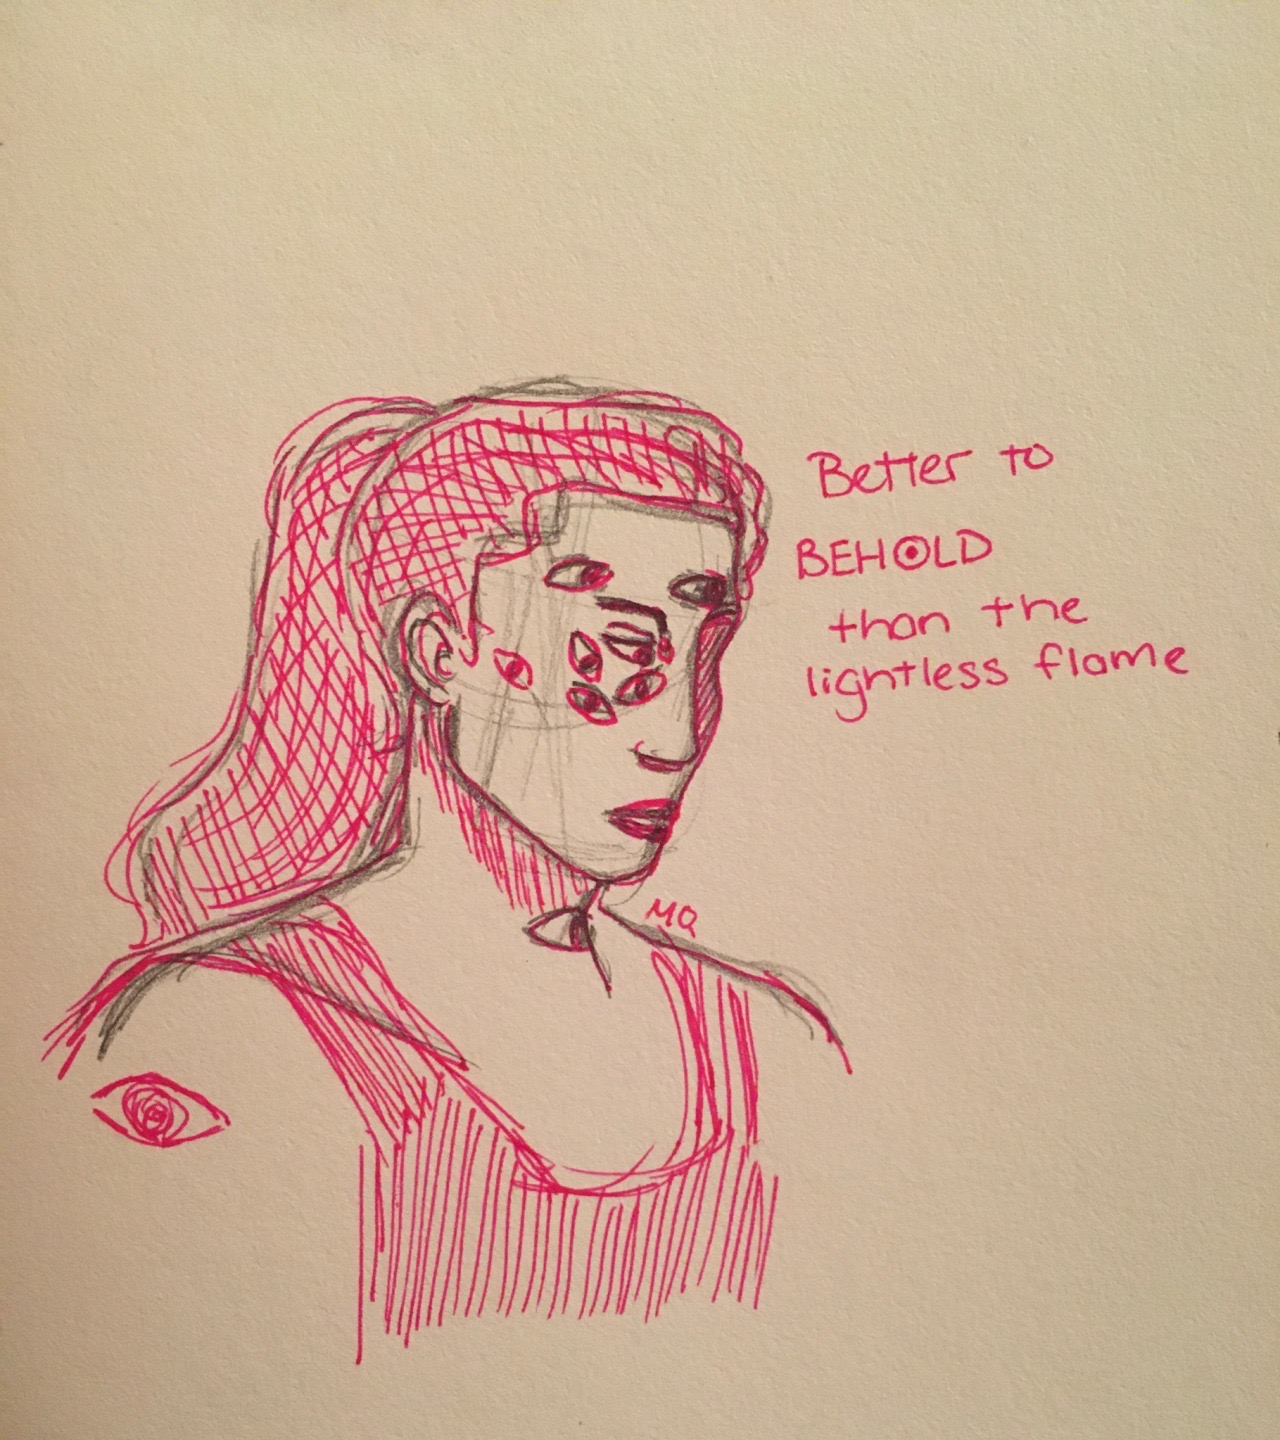 Better to
BEHOLD
than the
lightless flame
MQ